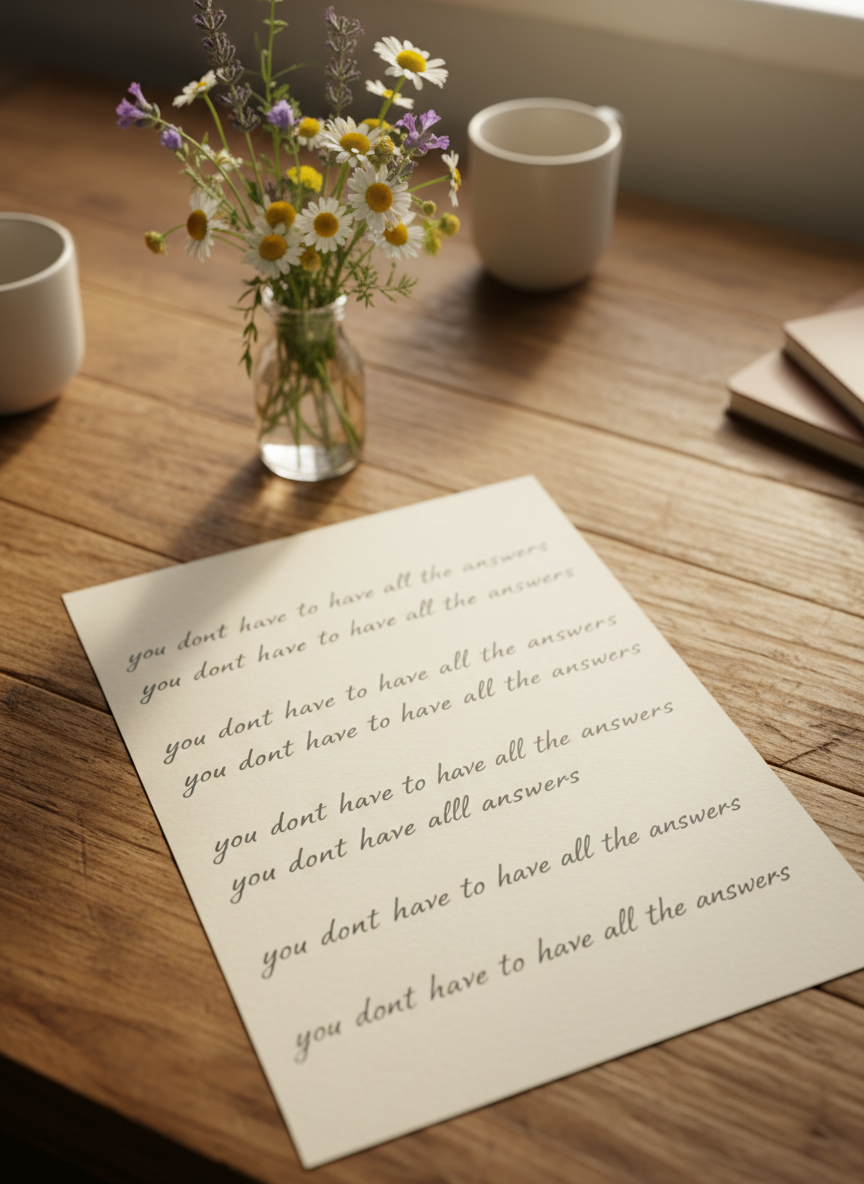 you dont have to have all the answers
you dont have to have all the answers
you dont have to have all the answers
you dont have to have all the answers
you dont have to have all the answers
you dont have alll answers
you dont have to have all the answers
you dont have to have all the answers